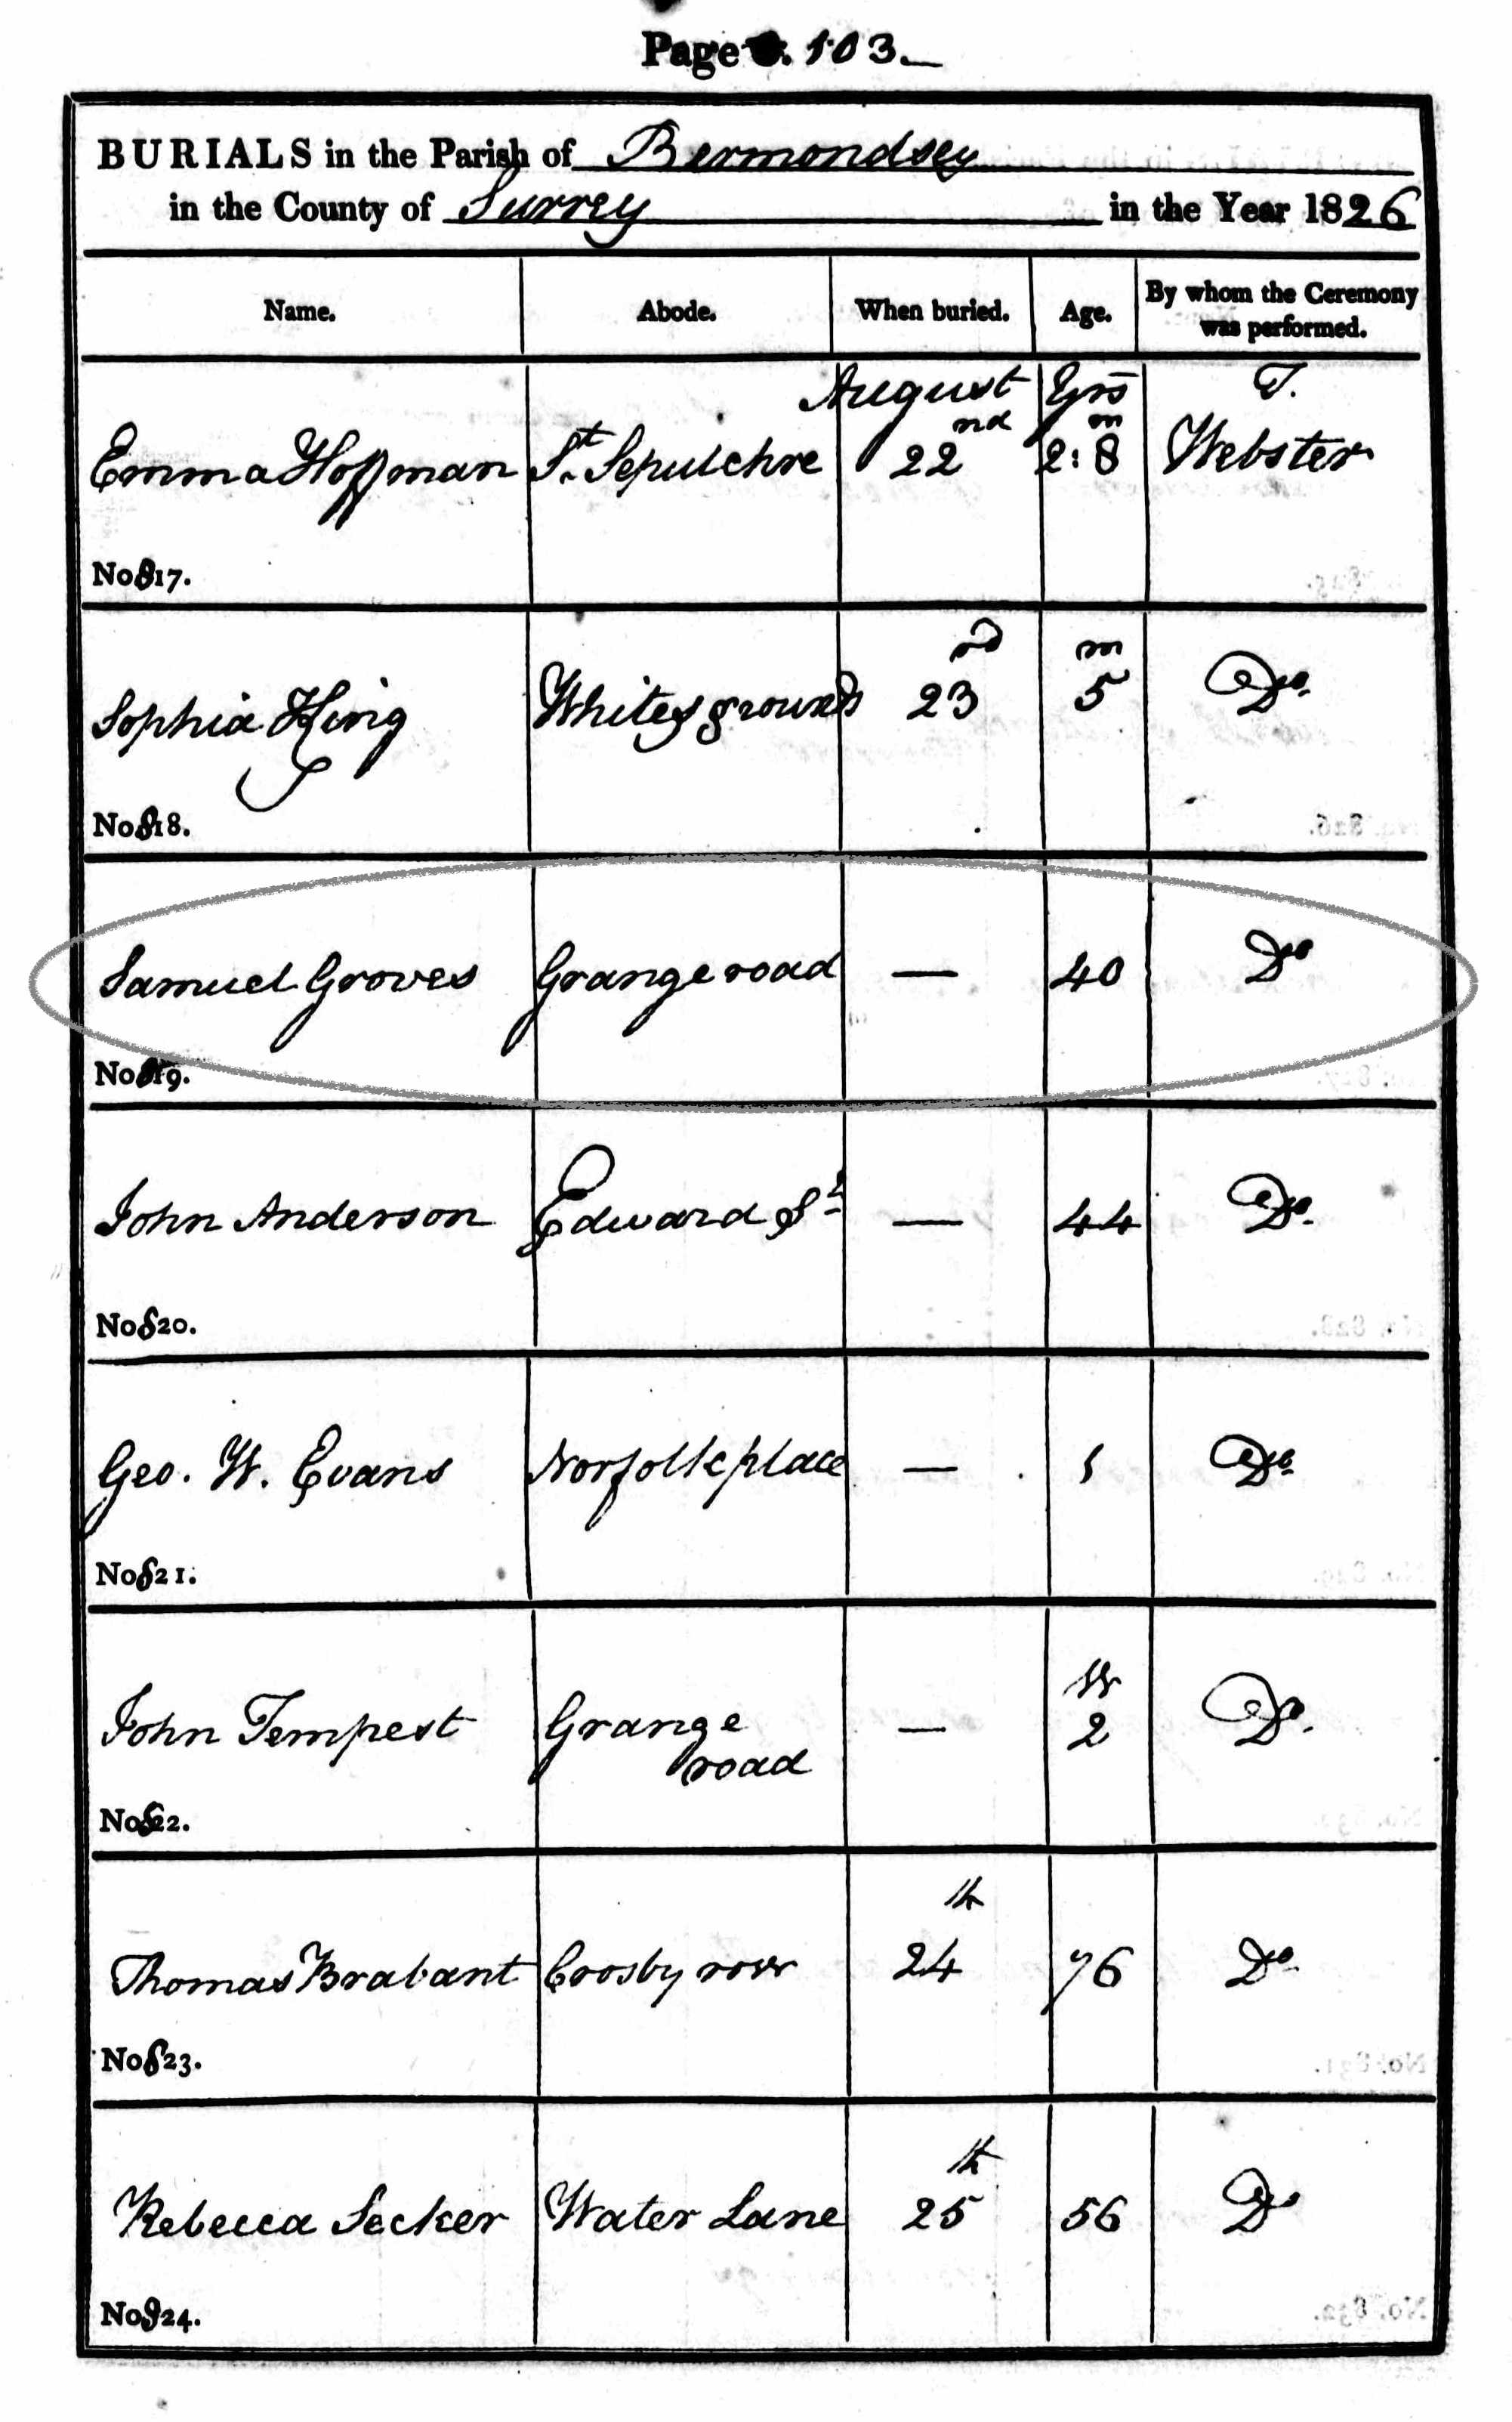 Page 103.
BURIALS in the Parish of Bermondsey
in the County of Surrey in the Year 1826
Name. Abode. When buried. Age. By whom the Ceremony was performed.
August Yrs T.
nd m
Emma Hoffman St. Sepulchre 22 2:8 Webster
No 817.
rd m
Sophia King Whites grounds 23 5 Do.
No 818.
Samuel Groves Grange road — 40 Do
No 819.
John Anderson Edward St — 44 Do.
No 820.
Geo. W. Evans Norfolk place — 1 Do.
No 821.
W
John Tempest Grange — 2 Do.
road
No 822.
th
Thomas Brabant Crosby row 24 76 Do.
No 823.
th
Rebecca Secker Water Lane 25 56 Do
No 824.